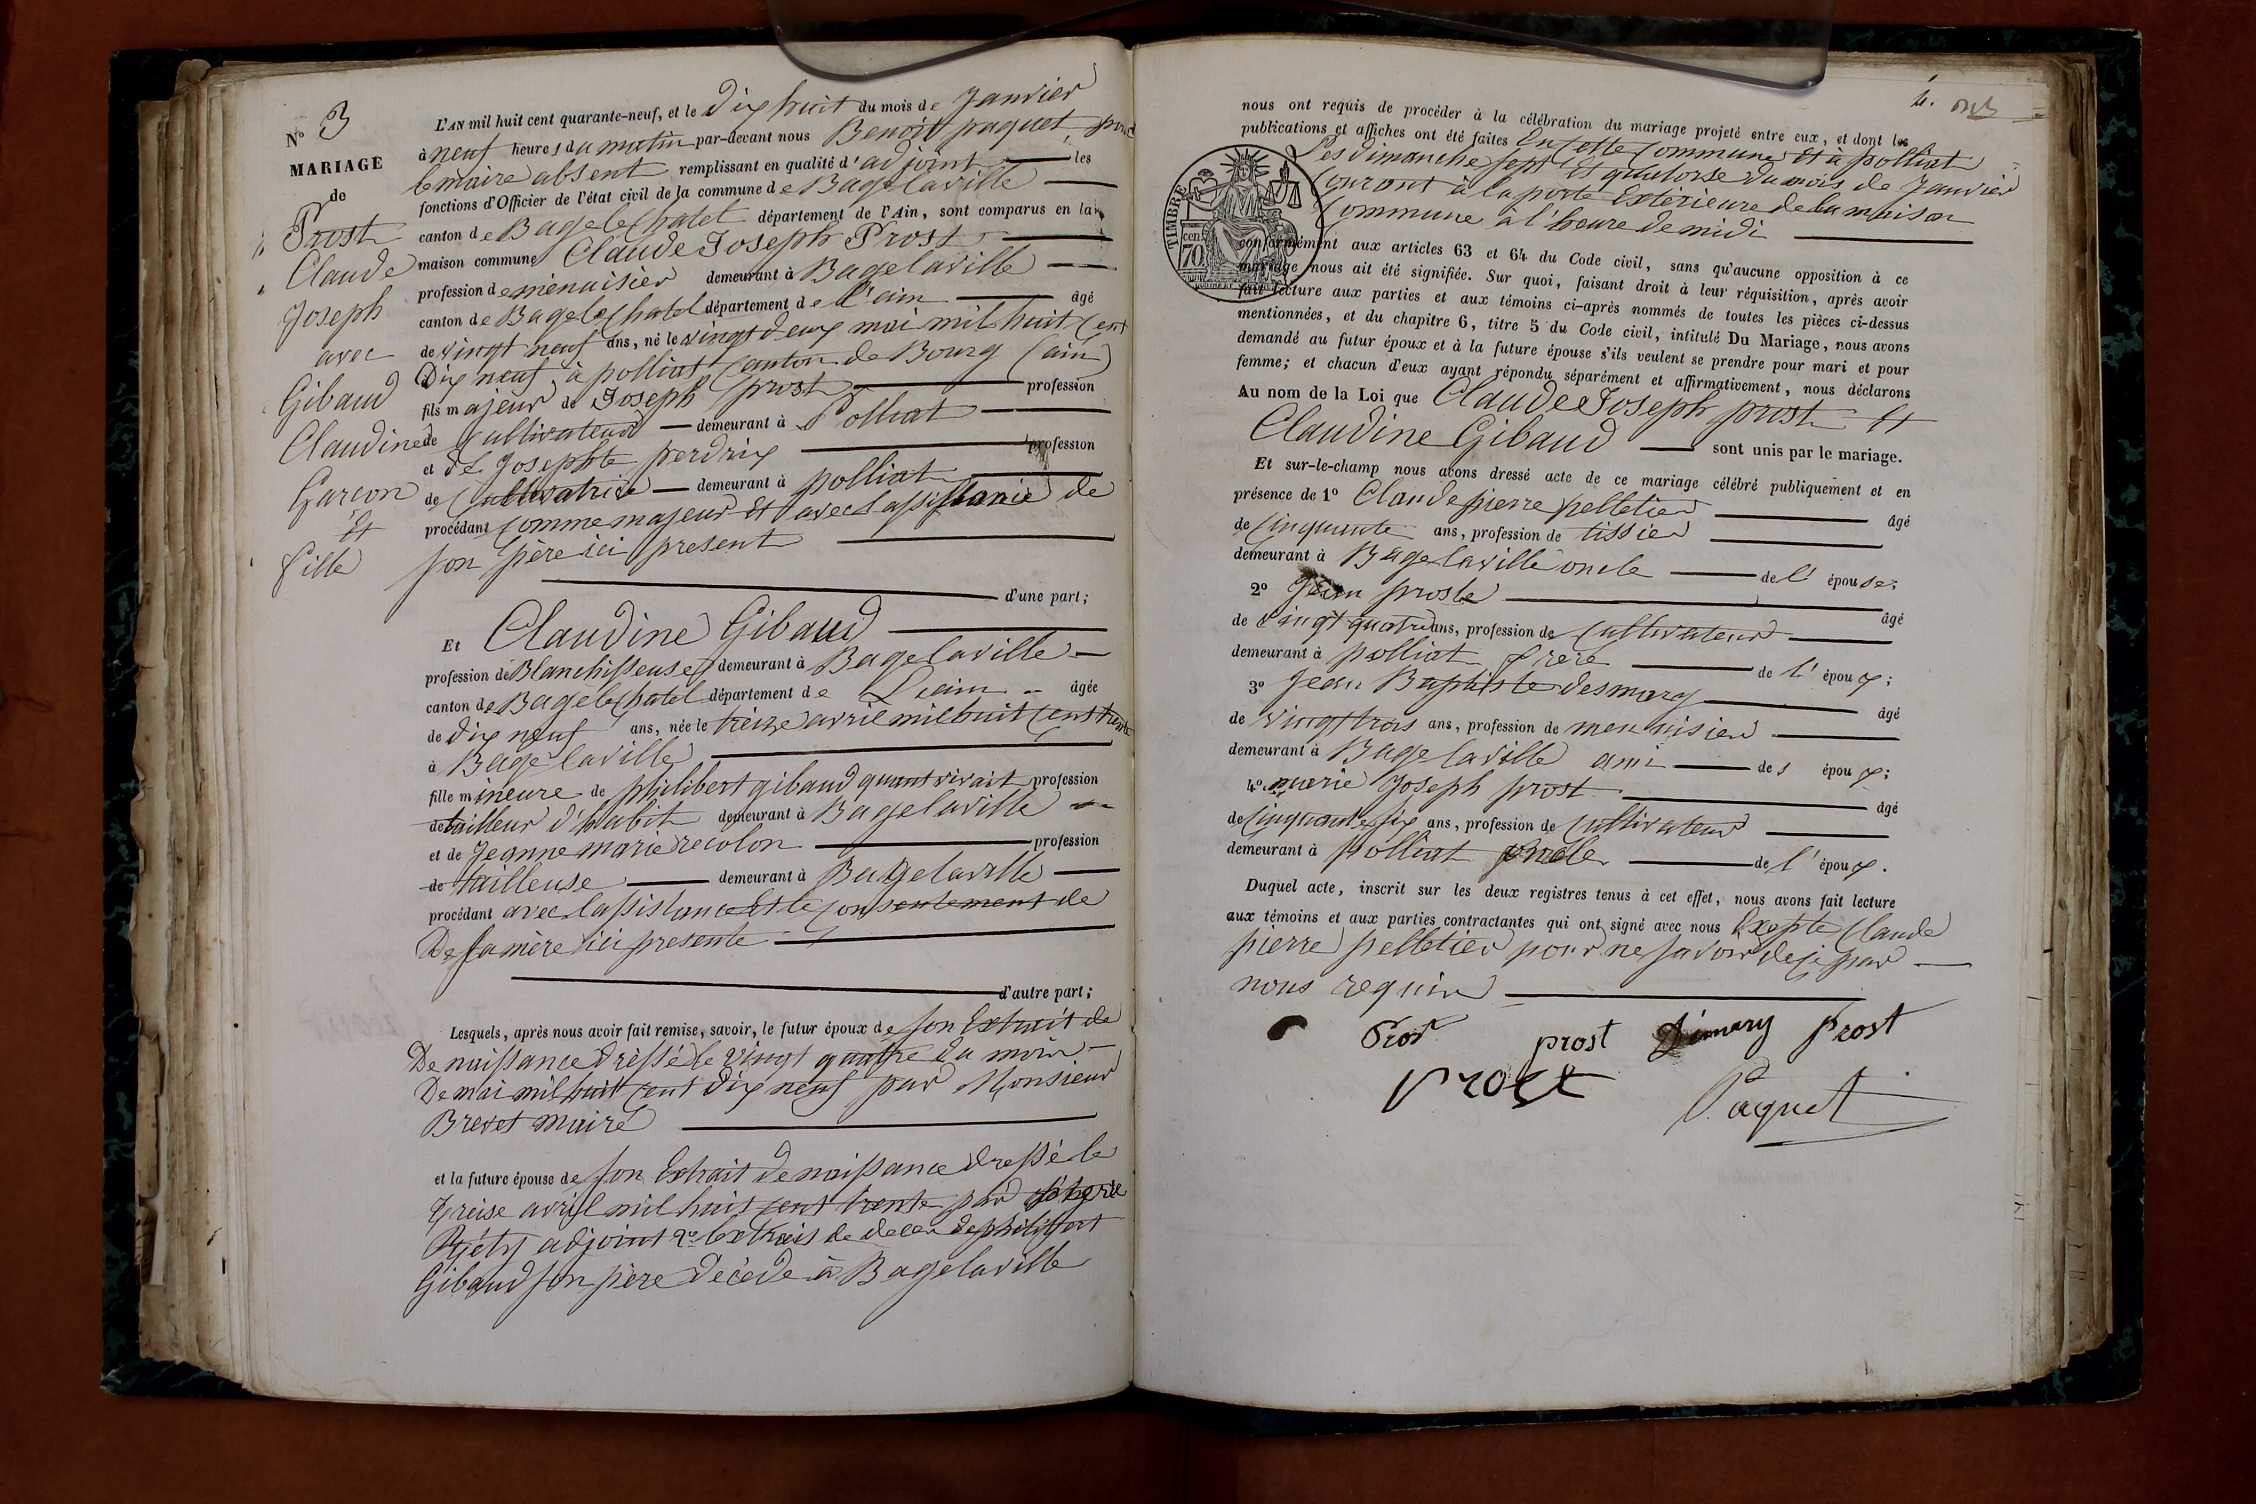 N° 3
MARIAGE
de
Prost
Claude
Joseph
avec
Gibaud
Claudine
Garcon
Et
fille
L'AN mil huit cent quarante-neuf, et le dix huit du mois de Janvier
à neuf heures du matin par-devant nous Benoit paquet pour
le maire absent remplissant en qualité d'adjoint les
fonctions d'Officier de l'état civil de la commune de Bagelaville
canton de Bagelechatel département de l'Ain, sont comparus en la
maison commune Claude Joseph Prost
profession de menuisier demeurant à Bagelaville
canton de Bagelechatel département de l'ain âgé
de vingt neuf ans, né le vingt deux mai mil huit cent
Dix neuf à polliat canton de Bourg (ain)
fils majeur de Joseph prost profession
de cultivateur demeurant à Polliat
et de Josephte perdrix profession
de Cultivatrice demeurant à polliat
procédant comme majeur et avec l'assistance de
son père ici present
d'une part;
Et Claudine Gibaud
profession de Blanchisseuse demeurant à Bagelaville
canton de Bagelechatel département de L'ain âgée
de dix neuf ans, née le treize avril mil huit cens trente
à Bagelaville
fille mineure de philibert gibaud quant vivait profession
de tailleur d'habit demeurant à Bagelaville
et de Jeanne marie recolon profession
de tailleuse demeurant à Bagelaville
procédant avec lassistance Et le consentement de
De sa mère ici presente
d'autre part;
Lesquels, après nous avoir fait remise, savoir, le futur époux de son Extrait de
De naissance dressé le vingt quatre du mois
De mai mil huit cent dix neuf par Monsieur
Brevet maire
et la future épouse de son Extrait de naissance dressé le
treise avril mil huit cent trente par
adjoint 2° Extrais de deces de philibert
Gibaud son père décédé à Bagelaville
4.
nous ont requis de procéder à la célébration du mariage projeté entre eux, et dont les
publications et affiches ont été faites En cette commune Et à polliat
Les dimanche sept Et quatorse du mois de Janvier
Courant à la porte Extérieure de la maison
Commune à l'heure de midi
TIMBRE
cen. 70
conformément aux articles 63 et 64 du Code civil, sans qu'aucune opposition à ce
mariage nous ait été signifiée. Sur quoi, faisant droit à leur réquisition, après avoir
fait lecture aux parties et aux témoins ci-après nommés de toutes les pièces ci-dessus
mentionnées, et du chapitre 6, titre 5 du Code civil, intitulé Du Mariage, nous avons
demandé au futur époux et à la future épouse s'ils veulent se prendre pour mari et pour
femme; et chacun d'eux ayant répondu séparément et affirmativement, nous déclarons
Au nom de la Loi que Claude Joseph prost Et
Claudine Gibaud sont unis par le mariage.
Et sur-le-champ nous avons dressé acte de ce mariage célébré publiquement et en
présence de 1° Claude pierre pelletier âgé
de Cinquante ans, profession de tissier
demeurant à Bagelaville oncle de l'épouse;
2° Jean proste âgé
de vingt quatre ans, profession de Cultivateur
demeurant à polliat frère de l'époux;
3° Jean Baptiste desmary âgé
de vingt trois ans, profession de menuisier
demeurant à Bagelaville ami des époux;
4° marie Joseph prost âgé
de Cinquante six ans, profession de Cultivateur
demeurant à polliat oncle de l'époux.
Duquel acte, inscrit sur les deux registres tenus à cet effet, nous avons fait lecture
aux témoins et aux parties contractantes qui ont signé avec nous Excepte Claude
pierre pelletier pour ne savoir de ce par
nous requis
Prost prost Démary Prost
Prost Paquet